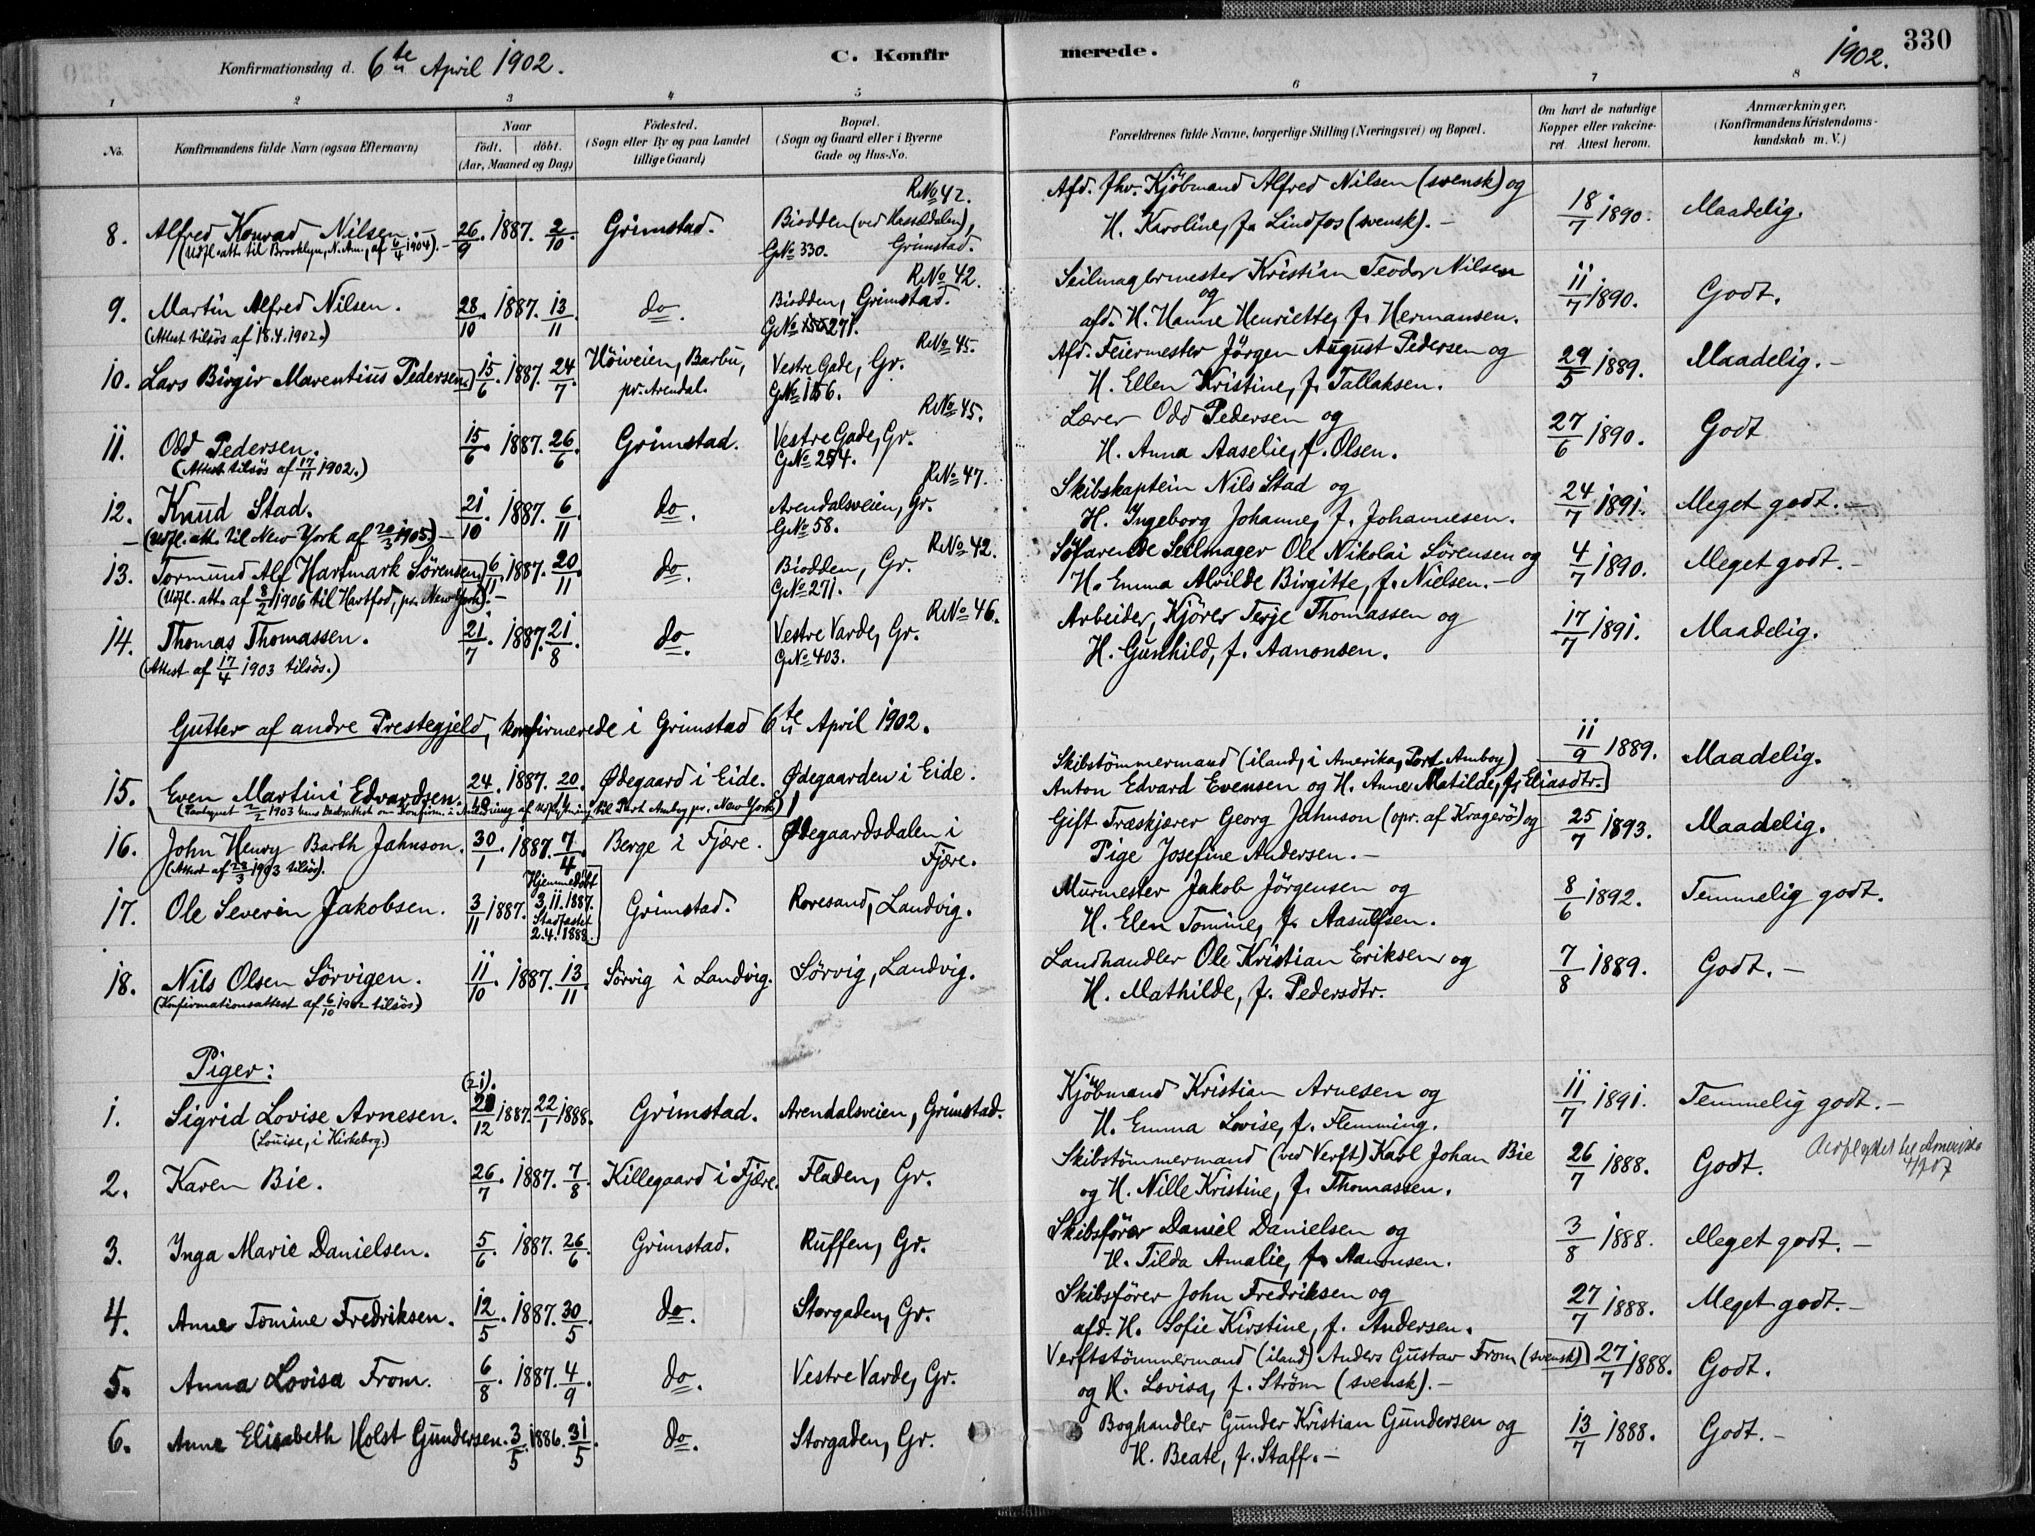 330
Konfirmationsdag d. 6te April 1902.
C. Konfirmerede.
1902.
1 2 3 4 5 6 7 8
No.
Konfirmandens fulde Navn (ogsaa Efternavn)
Naar
födt. döbt.
(Aar, Maaned og Dag)
Födested.
(Sogn eller By og paa Landet
tillige Gaard)
Bopæl.
(Sogn og Gaard eller i Byerne
Gade og Hus-No.
Forældrenes fulde Navne, borgerlige Stilling (Næringsvei) og Bopæl.
Om havt de naturlige
Kopper eller vakcine-
ret. Attest herom.
Anmærkninger.
(Konfirmandens Kristendoms-
kundskab m. V.)
R.No 42.
8. Alfred Konrad Nilsen. 26/9. 1887. 2/10. Grimstad. Biodden (ved Hasseldalen),
(Udfl. att. til Brooklyn, N. Am., af 6/4 1904). G.No 330. Grimstad.
Afd. fhv. Kjöbmand Alfred Nilsen (svensk) og
H. Karoline, f. Lindfos (svensk). 18/7 1890. Maadelig.
R.No 42.
9. Martin Alfred Nilsen. 28/10. 1887. 13/11 do. Biodden, Grimstad.
(Attest tilsös af 18.4.1902.) G.No 271.
Seilmagermester Kristian Teodor Nilsen
og
afd. H. Hanne Henriette, f. Hermansen. 11/7 1890. Godt.
R.No 45.
10. Lars Birgir Marentius Pedersen 15/6. 1887. 24/7. Höiveien, Barbu, Vestre Gade, Gr.
pr. Arendal. G.No 156.
Afd. Feiermester Jörgen August Pedersen og
H. Ellen Kristine, f. Tallaksen. 29/5 1889. Maadelig.
R.No 45.
11. Odd Pedersen. 15/6. 1887. 26/6. Grimstad. Vestre Gade, Gr.
(Attest tilsös af 17/11 1902.) G.No 254.
Lærer Odd Pedersen og
H. Anna Aaselie, f. Olsen. 27/6 1890. Godt
R.No 47.
12. Knud Stad. 21/10. 1887. 6/11 do. Arendalsveien, Gr.
(Udfl. att. til New York af 20/3 1905) G.No 58.
Skibskaptein Nils Stad og
H. Ingeborg Johanne, f. Johannesen. 24/7 1891. Meget godt.
R.No 42.
13. Tormund Alf Hartmark Sörensen 6/11. 1887. 20/11 do. Biodden, Gr.
(Udfl. att. af 8/2 1906 til Hartford, pr. New York). G.No 271.
Söfarende Seilmager Ole Nikolai Sörensen og
H. Emma Alvilde Birgitte, f. Nielsen. 4/7 1890. Meget godt.
R.No 46.
14. Thomas Thomassen. 21/7 1887. 21/8. do. Vestre Varde, Gr.
(Attest af 17/4 1903 tilsös.) G.No 403.
Arbeider, Kjörer Terje Thomassen og
H. Gunhild, f. Aanonsen. 17/7 1891. Maadelig.
Gutter af andre Prestegjeld, konfirmerede i Grimstad 6te April 1902.
15. Even Martini Edvardsen. 24/10. 1887. 20/11. Ødegaard i Eide. Ødegaarden i Eide.
til Port Amboy pr. New York)
Skibstömmermand (iland, i Amerika, Port Amboy)
Anton Edvard Evensen og H. Anne Matilde, f. Eliasdtr. 11/9 1889. Maadelig.
16. John Henry Barth Jahnson. 30/1. 1887. 7/4. Berge i Fjære. Ødegaardsdalen i
(Attest af 23/3 1903 tilsös). Fjære.
Gift Træskjærer Georg Jahnson (opr. af Kragerö) og
Pige Josefine Andersen. 25/7 1893. Maadelig.
17. Ole Severin Jakobsen. 3/11 1887. Hjemmedöbt 3.11.1887. Stadfæstet 2.4.1888. Grimstad. Roresand, Landvig.
Murmester Jakob Jörgensen og
H. Elen Tomine, f. Aasulfsen. 8/6 1892. Temmelig godt.
18. Nils Olsen Sörvigen. 11/10. 1887. 13/11. Sörvig i Landvig. Sörvig, Landvig.
(Konfirmationsattest af 6/10 1902 tilsös)
Landhandler Ole Kristian Eriksen og
H. Mathilde, f. Pedersdtr. 7/8 1889. Godt.
Piger:
(21).
1. Sigrid Lovise Arnesen. 12 1887. 22/1 1888. Grimstad. Arendalsveien, Grimstad.
(Louise, i Kirkebog.)
Kjöbmand Kristian Arnesen og
H. Emma Lovise, f. Flemming. 11/7 1891. Temmelig godt.
2. Karen Bie. 26/7. 1887. 7/8. Killegaard i Fjære. Fladen, Gr.
Skibstömmermand (ved Verft) Karl Johan Bie
og H. Nille Kristine, f. Thomassen. 26/7 1888. Godt. Udflyttet til Amerika
4/7 07
3. Inga Marie Danielsen. 5/6. 1887. 26/6. Grimstad. Ruffen, Gr.
Skibsförer Daniel Danielsen og
H. Tilda Amalie, f. Aanonsen. 3/8 1888. Meget godt.
4. Anne Tomine Fredriksen. 12/5. 1887. 30/5. do. Storgaden, Gr.
Skibsförer John Fredriksen og
afd. H. Sofie Kirstine, f. Andersen. 27/7 1888. Meget godt.
5. Anna Lovisa From. 6/8. 1887. 4/9. do. Vestre Varde, Gr.
Verftstömmermand (iland) Anders Gustav From (svensk)
og H. Lovisa, f. Ström (svensk). 27/7 1888. Godt.
6. Anne Elisabeth Holst Gundersen. 3/5. 1886. 31/5. do. Storgaden, Gr.
Boghandler Gunder Kristian Gundersen og
H. Beate, f. Staff. 13/7 1888. Godt.